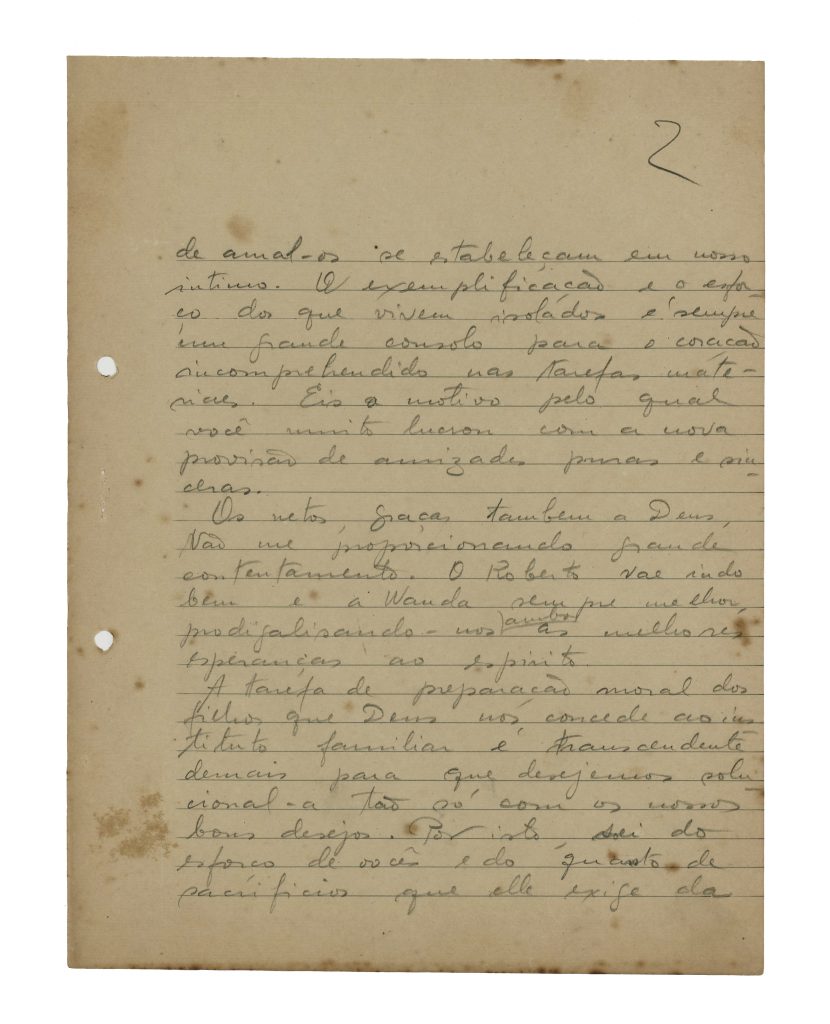 2
de amal-os se estabeleçam em nosso
intimo. A exemplificação e o esfor-
ço dos que vivem isolados é sempre
um grande consolo para o coração
incomprehendido nas tarefas mate-
riaes. Eis o motivo pelo qual
você muito lucrou com a nova
provisão de amizades puras e sin-
ceras.
Os netos, graças tambem a Deus,
vão me proporcionando grande
contentamento. O Roberto vae indo
bem e a Wanda sempre melhor,
ambos
prodigalisando-nos as melhores
esperanças ao espirito.
A tarefa de preparação moral dos
filhos que Deus nos concede ao ins
tituto familiar é transcendente
demais para que desejemos solu-
cional-a tão só com os nossos
bons desejos. Por isto, sei do
esforço de vocês e do quanto de
sacrificios que elle exige da